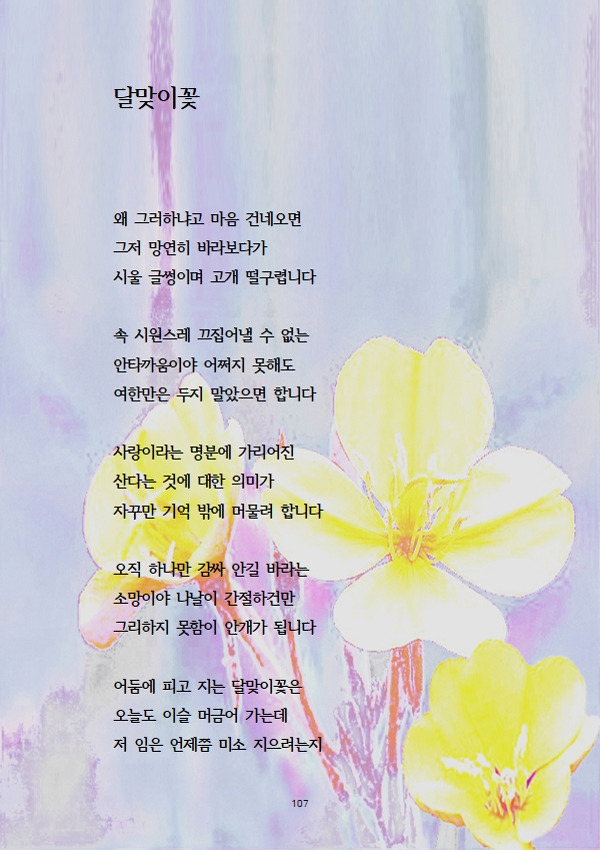 달맞이꽃
왜 그러하냐고 마음 건네오면
그저 망연히 바라보다가
시울 글썽이며 고개 떨구렵니다
속 시원스레 끄집어낼 수 없는
안타까움이야 어쩌지 못해도
여한만은 두지 말았으면 합니다
사랑이라는 명분에 가리어진
산다는 것에 대한 의미가
자꾸만 기억 밖에 머물려 합니다
오직 하나만 감싸 안길 바라는
소망이야 나날이 간절하건만
그리하지 못함이 안개가 됩니다
어둠에 피고 지는 달맞이꽃은
오늘도 이슬 머금어 가는데
저 임은 언제쯤 미소 지으려는지
107